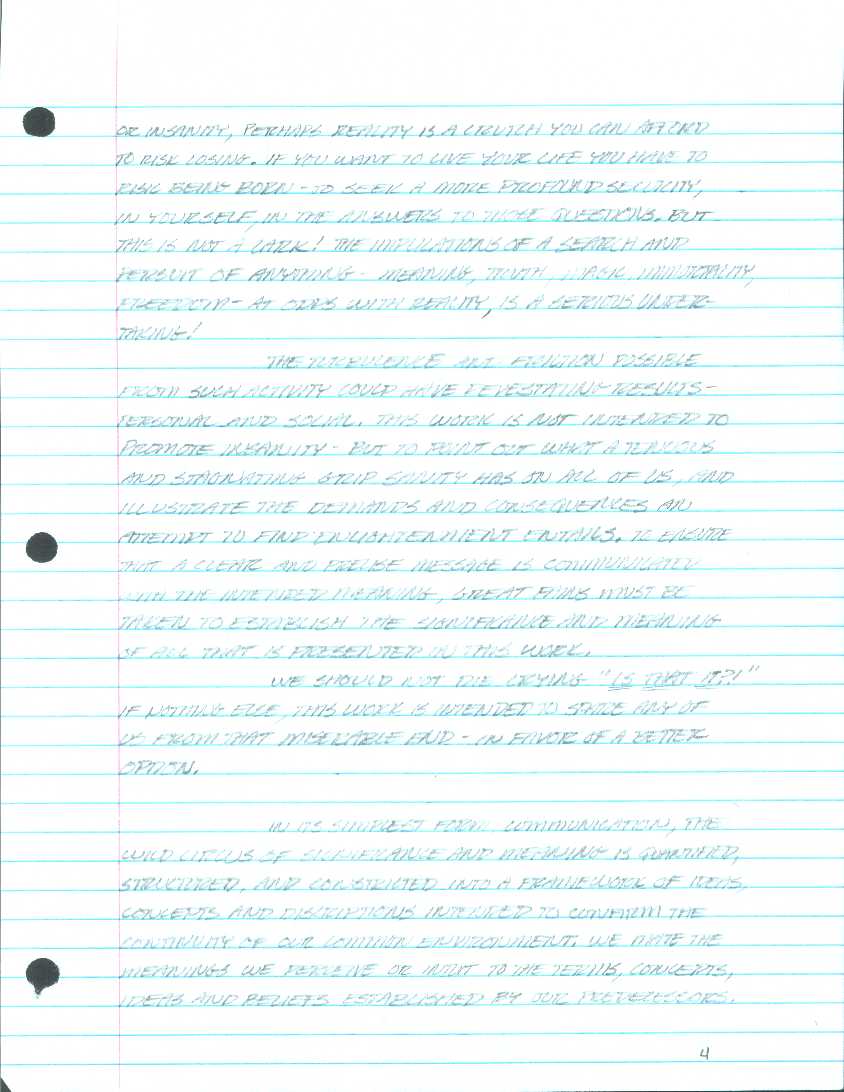 OR INSANITY, PERHAPS REALITY IS A CRUTCH YOU CAN AFFORD
TO RISK LOSING. IF YOU WANT TO LIVE YOUR LIFE YOU HAVE TO
RISK BEING BORN - TO SEEK A MORE PROFOUND
IN YOURSELF, IN THE ANSWERS TO THOSE QUESTIONS. BUT
THIS IS NOT A LARK! THE IMPLICATIONS OF A SEARCH AND
PERSUIT OF ANYTHING - MEANING, TRUTH, MAGIC, IMMORTALITY,
FREEDOM - AT ODDS WITH REALITY, IS A SERIOUS UNDER-
TAKING!
THE TURBULENCE AND FRICTION POSSIBLE
FROM SUCH ACTIVITY COULD HAVE DEVESTATING RESULTS -
PERSONAL AND SOCIAL. THIS WORK IS NOT INTENDED TO
PROMOTE INSANITY - BUT TO POINT OUT WHAT A TENUOUS
AND STAGNATING GRIP SANITY HAS ON ALL OF US, AND
ILLUSTRATE THE DEMANDS AND CONSEQUENCES AN
ATTEMPT TO FIND ENLIGHTENMENT ENTAILS. TO ENSURE
THAT A CLEAR AND PRECISE MESSAGE IS COMMUNICATED
WITH THE INTENDED MEANING, GREAT PAINS MUST BE
TAKEN TO ESTABLISH THE SIGNIFICANCE AND MEANING
OF ALL THAT IS PRESENTED IN THIS WORK.
WE SHOULD NOT DIE CRYING "IS THAT IT?!"
IF NOTHING ELSE, THIS WORK IS INTENDED TO ANY OF
US FROM THAT MISERABLE END - IN FAVOR OF A BETTER
OPTION.
IN ITS SIMPLEST FORM COMMUNICATION, THE
WILD CIRCUS OF SIGNIFICANCE AND MEANING IS QUANTIFIED,
STRUCTURED, AND CONSTRICTED INTO A FRAMEWORK OF IDEAS,
CONCEPTS AND DISCRIPTIONS INTENDED TO CONFIRM THE
CONTINUITY OF OUR COMMON ENVIRONMENT. WE MATE THE
MEANINGS WE PERCEIVE OR INTUIT TO THE TERMS, CONCEPTS,
IDEAS AND BELIEFS ESTABLISHED BY OUR PREDECESSORS.
4